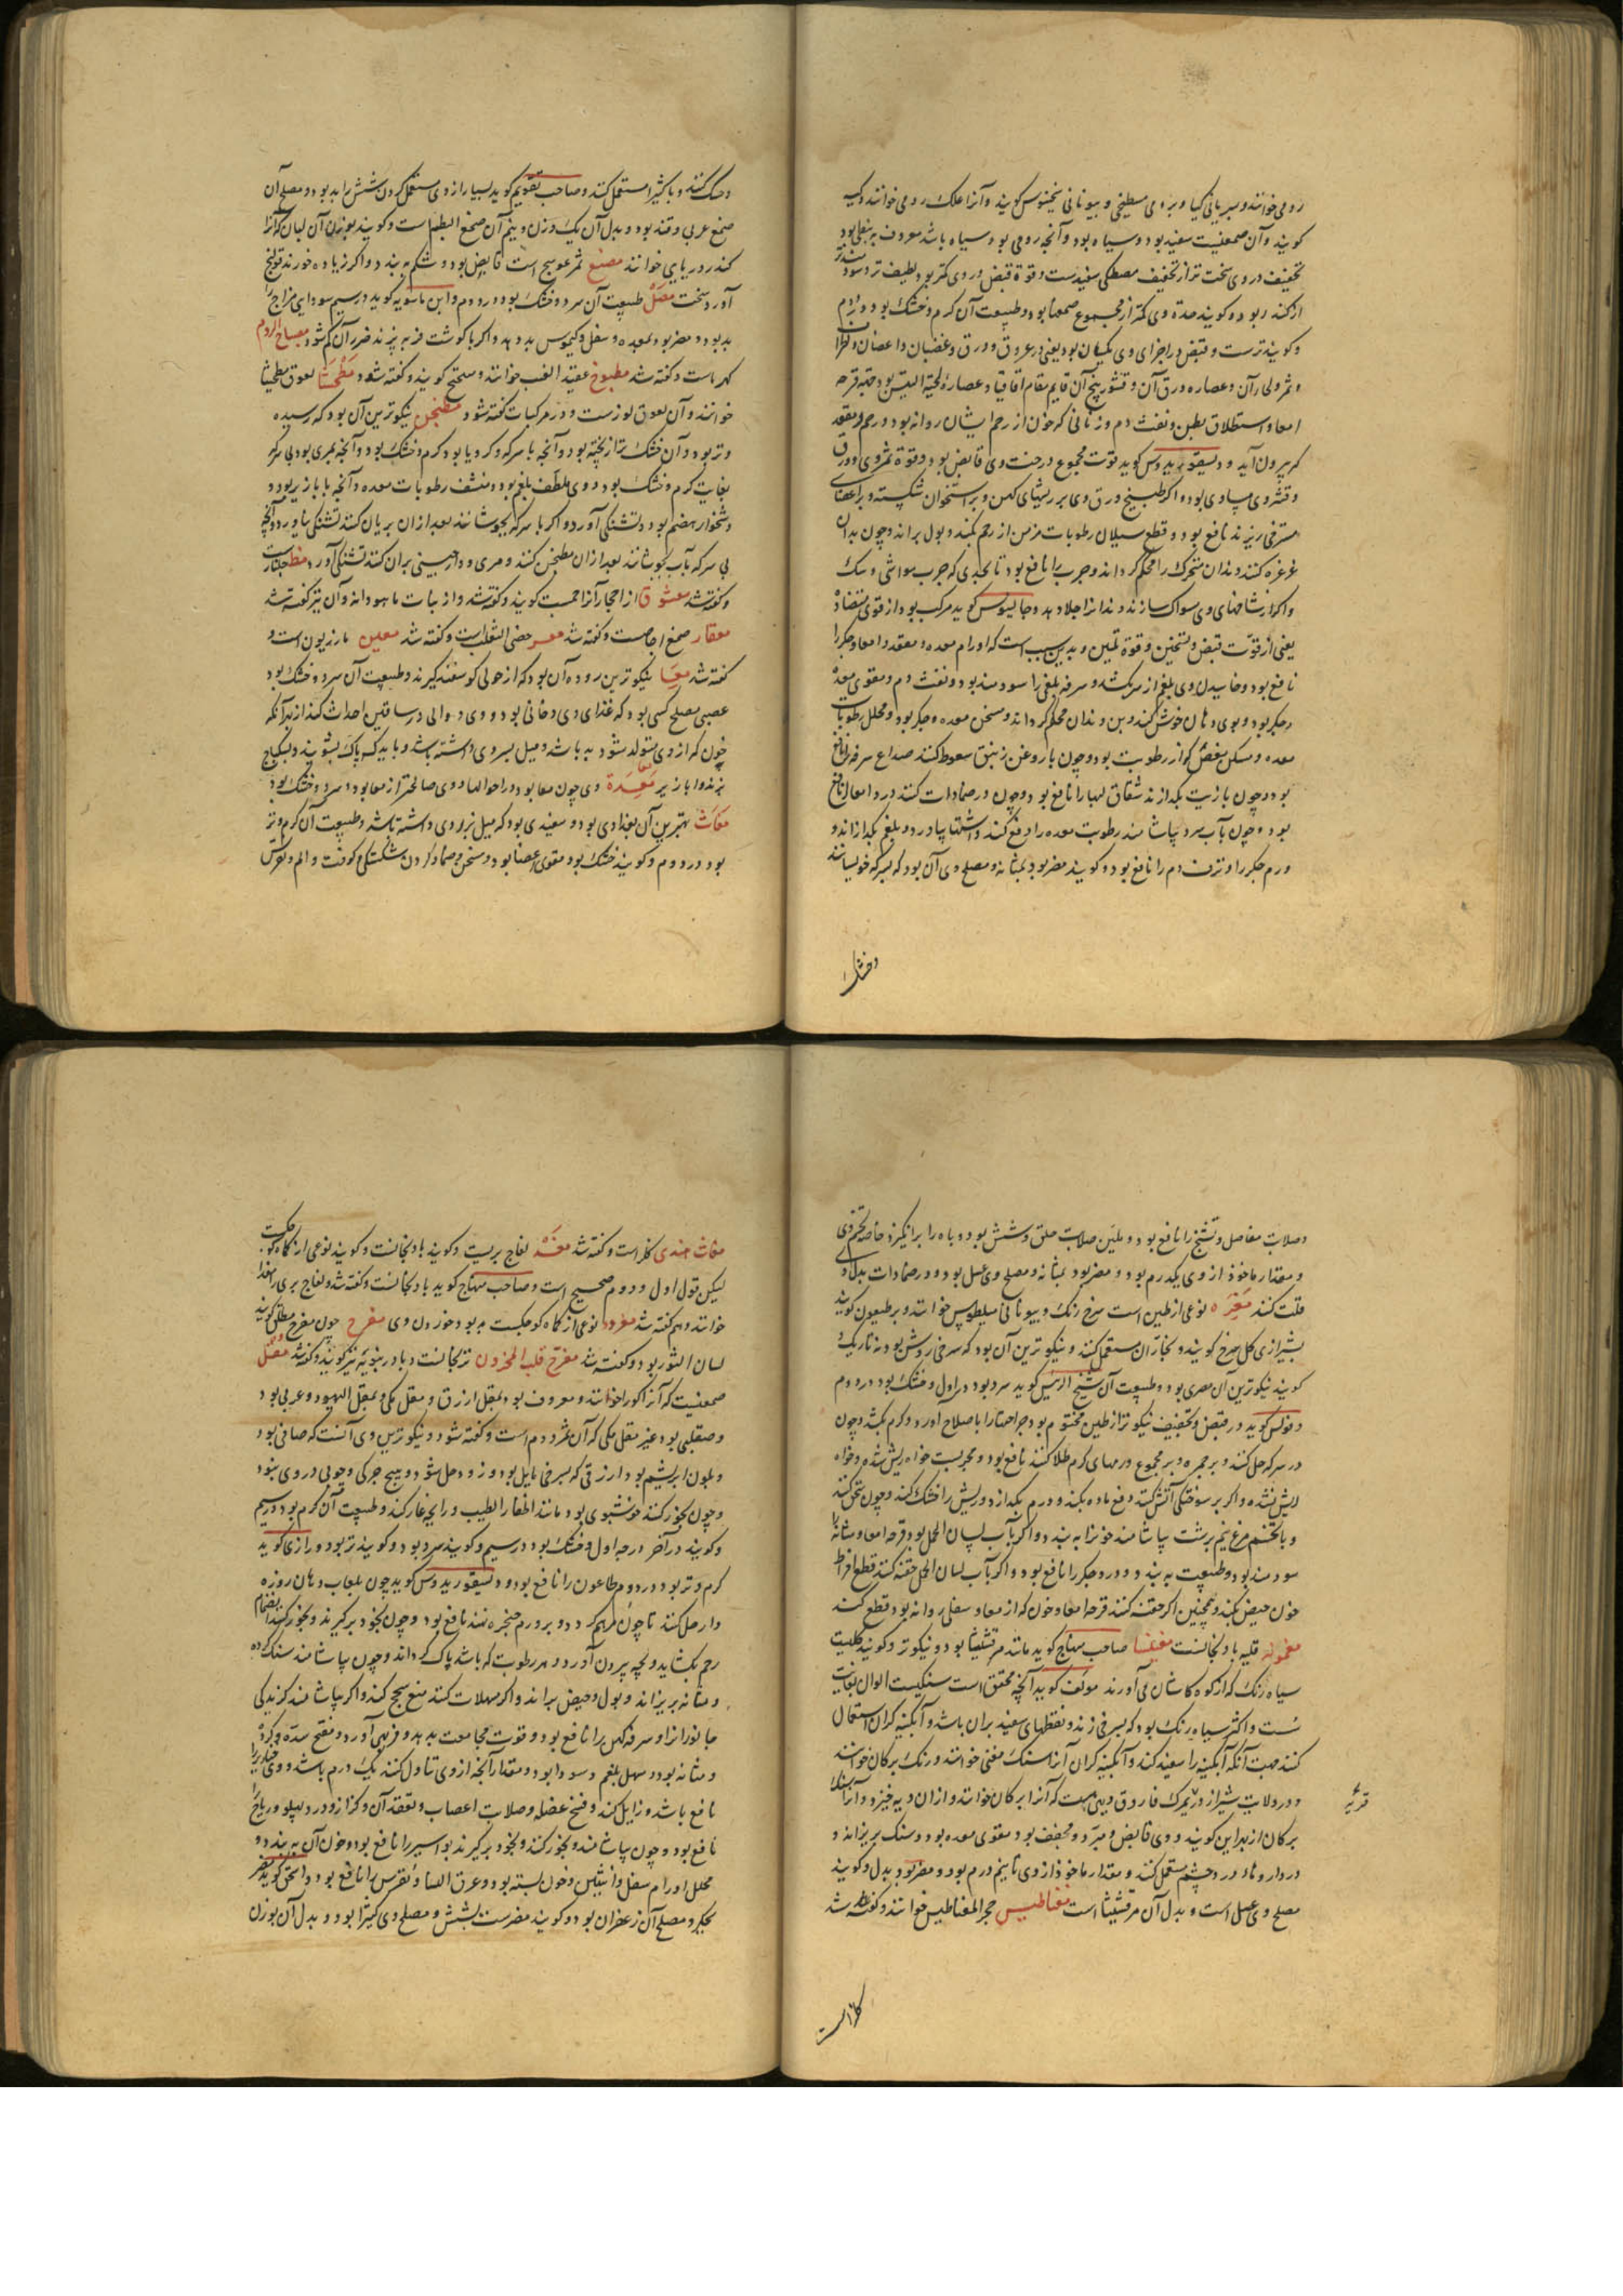 رومی خوانند و سریانی کیا و برومی مسطیخی و بیونانی سخینوس کویند و آنرا علک رومی خوانند و کیه
کویند و آن صمغیست سفید بود و سیاه بود و آنچه رومی بود سیاه باشد معروف به نبطی بود
تجفیف در وی سخت تر از تجفیف مصطکی سفیدست و قوة قبض در وی کمتر بود لطیف تر و سودمندتر
از کندر بود و کویند حدة وی کمتر از مجموع صمغها بود و طبیعت آن کرم و خشک بود در دوم
و کویند ترست و قبض در اجزای وی یکسان بود یعنی در عروق و ورق و غضبان و اغصان و اطراف
و ثمر ولحا آن و عصاره ورق آن و قشور بیخ آن قایم مقام اقاقیا و عصارۀ لحیة التیس بود جهة قرحه
امعا و استطلاق بطن و نفث دم و زنانی که خون از رحم ایشان روانه بود و رحم و مقعد
که بیرون آید و دیسقوریدوس کوید قوت مجموع درخت وی قابض بود و قوة ثمر وی و ورق
و قشر وی مساوی بود و اکر طبیخ ورق وی بر ریشهای کهن و بر استخوان شکسته و بر اعضای
مسترخی ریزند نافع بود و قطع سیلان رطوبات مزمن از رحم بکند و بول براند و چون بدان
غرغره کنند دندان متحرک را محکم کرداند و جرب را نافع بود تا بحدی که جرب مواشی و سک
و اکر از شاخهای وی مسواک سازند دندانرا جلا دهد و جالینوس کوید مرکب بود از قوی متضاد
یعنی از قوّت قبض و تسخین و قوة تلیین و بدین سبب است که اورام معده و مقعد و امعا و جکر را
نافع بود و خاییدن وی بلغم از سر بکشد و سرفه بلغمی را سودمند بود و نفث دم و مقوی معده
و جکر بود و بوی دهان خوش کند و بن دندان محکم کرداند و مسخن معده و جکر بود و محلل رطوبات
معده و مسکن مغص که از رطوبت بود و چون با روغن زنبق سعوط کنند صداع سر را نافع
بود و چون با زیت بکدازند شقاق لبها را نافع بود و چون در ضمادات کنند درد امعا را نافع
بود و چون بآب سرد بیاشامند رطوبت معده را دفع کند و اشتها بیاورد و بلغم بکدازاند و
ورم جکر را و نزف دم را نافع بود و کویند مضر بود بمثانه و مصلح وی آن بود که بسرکه خوسانند
و خشک
و خشک کنند و با کثیرا مستعمل کنند و صاحب تقویم کوید بسیار از وی مستعمل کردن شش را بد بود و مصلح آن
صمغ عربی و قند بود و بدل آن یک وزن و نیم آن صمغ البطم است و کویند بوزن آن لبان که آنرا
کندر دریایی خوانند مصع ثمر عوسج است قابض بود و شکم ببندد و اکر زیاده خورند قولنج
آورد سخت مصل طبیعت آن سرد و خشک بود در دوم و ابن ماسویه کوید در سیم سودای مزاج را
بد بود و مضر بود بمعده و سفل و کیموس بد دهد و اکر با کوشت فربه پزند ضرر آن کم شود مصباح الروم
کهرباست و کفته شد مطبوخ عقید العنب خوانند و میپختج کویند و کفته شود مطحیثا لعوق مطحیثا
خوانند و آن لعوق لوزست و در مرکبات کفته شود مطجن نیکوترین آن بود که رسیده
و تر بود و آن خشک تر از پخته بود و آنچه با سرکه و کرویا بود کرم و خشک بود و آنچه بمری بود بی سرکه
بغایت کرم و خشک بود و وی ملطف بلغم بود و منشف رطوبات معده و آنچه با باز یر بود و
دشخوار هضم بود و تشنکی آورد و اکر با سرکه بجوشانند بعد از آن بریان کنند تشنکی نیاورد و آنچه
بی سرکه بآب بجوشانند بعد از آن مطجن کنند و مری و دارچینی بران کنند تشنکی آورد مظ جلنارست
و کفته شد معشوق از احجار آنرا جمست کویند و کفته شد و از نبات ماهودانه و آن نیز کفته شد
معقار صمغ اجاصست و کفته شد معسر خصی الثعلب است و کفته شد معین مازریون است و
کفته شد معیا نیکوترین روده آن بود که از حولی کوسفند کیرند و طبیعت آن سرد و خشک بود
عصبی مصلح کسی بود که غذای وی دخانی بود و وی دوالی در ساقین احداث کند از بهر آنکه
خون که از وی متولد شود بد باشد و میل بسردی داشته باشد و باید که پاک بشویند و بسکباج
پزند و ابازیر معده وی چون معا بود در احوالها و وی صالحتر از معا بود سرد و خشک بود
مغاث بهترین آن بغدادی بود و سفیدی بود که میل بزردی داشته باشد و طبیعت آن کرم و تر
بود در دوم و کویند خشک بود مقوی اعضا بود و مسخن و ضماد کردن شکستکی و کوفت و الم و نقرس
و صلابة مفاصل و تشنج را نافع بود و ملین صلابت حلق و شش بود و باه را برانکیزد خاصه تخم وی
و مقدار ماخوذ از وی یکدرم بود و مضر بود بمثانه و مصلح وی عسل بود و در ضمادات بدل وی
قلت کنند مغره نوعی از طین است سرخ رنک و بیونانی میلطوس خوانند و برطیعون کویند
بشیرازی کل سرخ کویند و نجاران مستعمل کنند و نیکوترین آن بود که سرخی روشن بود نه تاریک و
کویند نیکوترین آن مصری بود و طبیعت آن شیخ الرئیس کوید سرد بود در اول و خشک بود در دوم
و فولس کوید در قبض و تجفیف نیکوتر از طین مختوم بود جراحتها را باصلاح آورد و کرم بکشد و چون
در سرکه حل کنند و بر جمره و بر مجموع ورمهای کرم طلا کنند نافع بود و مجربست خواه ریش شده و خواه
ریش نشده و اکر بر سوختکی آتش کنند دفع ماده بکند و ورم بکدازد و ریش را خشک کند و چون سحق کنند
و با تخم مرغ نیم برشت بیاشامند خونرا ببندد و اکر بآب لسان الحمل بود قرحه امعا و مثانه را
سودمند بود و طبیعت ببندد و درد جکر را نافع بود و اکر بآب لسان الحمل حقنه کنند قطع افراط
خون حیض بکند و همچنین اکر حقنه کنند قرحه امعا و خون که از معا و سفل روانه بود قطع کند
مغمومه قلیه بادنجانست مغنیسا صاحب منهاج کوید مانند مرقشیثا بود و نیکوتر و کویند کلیست
سیاه رنک که از کوه کاشان می آورند مولف کوید آنچه محقق است سنکیست الوان بغایت
سست و اکثر سیاه رنک بود که بسرخی زند و نقطهای سفید بران باشد و آبکینه کران استعمال
کنند جهت آنکه آبکینه را سفید کند و آبکینه کران آنرا سنک مغنی خوانند و رنک برکان خوانند
و در ولایت شیراز در نیمرک فاروق دیهی هست که آنرا برکان خوانند و از ان دیه خیزد و آنرا سنک
برکان از بهر این کویند و وی قابض و مبرّد و مجفف بود مقوی معده بود و سنک بریزاند و
در داروهای درد چشم مستعمل کنند و مقدار ماخوذ از وی تا نیم درم بود و مضر بود بدل و کویند
مصلح وی عسل است و بدل آن مرقشیثا است مغناطیس حجر المغناطیس خوانند و کفته شد
قریه
کلزاست
مغاث هندی کلزاست و کفته شد مغد لفاح بریست و کویند بادنجانست و کویند نوعی از کماة کوچکست
لیکن قول اول و دوم صحیح است و صاحب منهاج کوید بادنجانست و کفته شد و لفاح بری را مغدا
خوانند و هم کفته شد مغرود نوعی از کماه کوچکست بد بود خوردن وی مفرح چون مفرح مطلق کویند
لسان الثور بود و کفته شد مفرح قلب المحزون ترنجانست و بادرنبویه نیز کویند و کفته شد مقل
صمغیست که آنرا کور خوانند و معروف بود بمقل ازرق و مقل مکی و بمقل الیهود و عربی بود
و صقلبی بود غیر مقل مکی که آن ثمر دوم است و کفته شود و نیکوترین وی آنست که صافی بود
و بلون ابریشم بود ازرقی که بسرخی مایل بود و زود حل شود و هیچ چرکی و چوبی در وی نبود
و چون بخور کنند خوشبوی بود مانند اظفار الطیب و رایحه غار کند و طبیعت آن کرم بود در سیم
و کویند در آخر درجه اول و خشک بود در سیم و کویند سرد بود و کویند تر بود و رازی کوید
کرم و تر بود در دوم طاعون را نافع بود و دیسقوریدوس کوید چون بلعاب دهان روزه
دار حل کنند تا چون مرهم کردد و بر ورم حنجره نهند نافع بود و چون بخود برکیرند و بخور کنند انضمام
رحم بکشاید و بچه بیرون آورد و هر رطوبت که باشد پاک کرداند و چون بیاشامند سنک کرده
و مثانه بریزاند و بول و حیض براند و اکر مسهلات کنند منع سحج کند و اکر بیاشامند کزندکی
جانورانرا و سرفه کهن را نافع بود و قوت مجامعت بدهد و فربهی آورد و مفتح سده و کرده
و مثانه بود و مسهل بلغم و سودا بود و مقدار آنچه از وی تناول کنند یک درم باشد و وی خنازیر را
نافع باشد و زایل کند و فسخ عضله و صلابت اعصاب و تعقد آن و کزاز و درد پهلو و ریاح را
نافع بود و چون بیاشامند و بخور کنند و بخود برکیرند بواسیر را نافع بود و خون آن ببندد و
محلل اورام سفل و انثیین و خون بسته بود و عرق النسا و نقرس را نافع بود و اسحق کوید مضر
بجکر و مصلح آن زعفران بود و کویند مضرست بشش و مصلح وی کتیرا بود و بدل آن بوزن